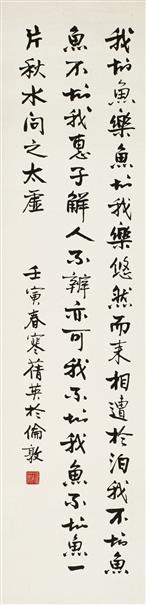 我知魚樂魚知我樂悠然而来相遭於泊我不知魚
魚不知我惠子解人不辨亦可我不知我魚不知魚一
片秋水问之太虛
壬寅春寒蒨英於倫敦